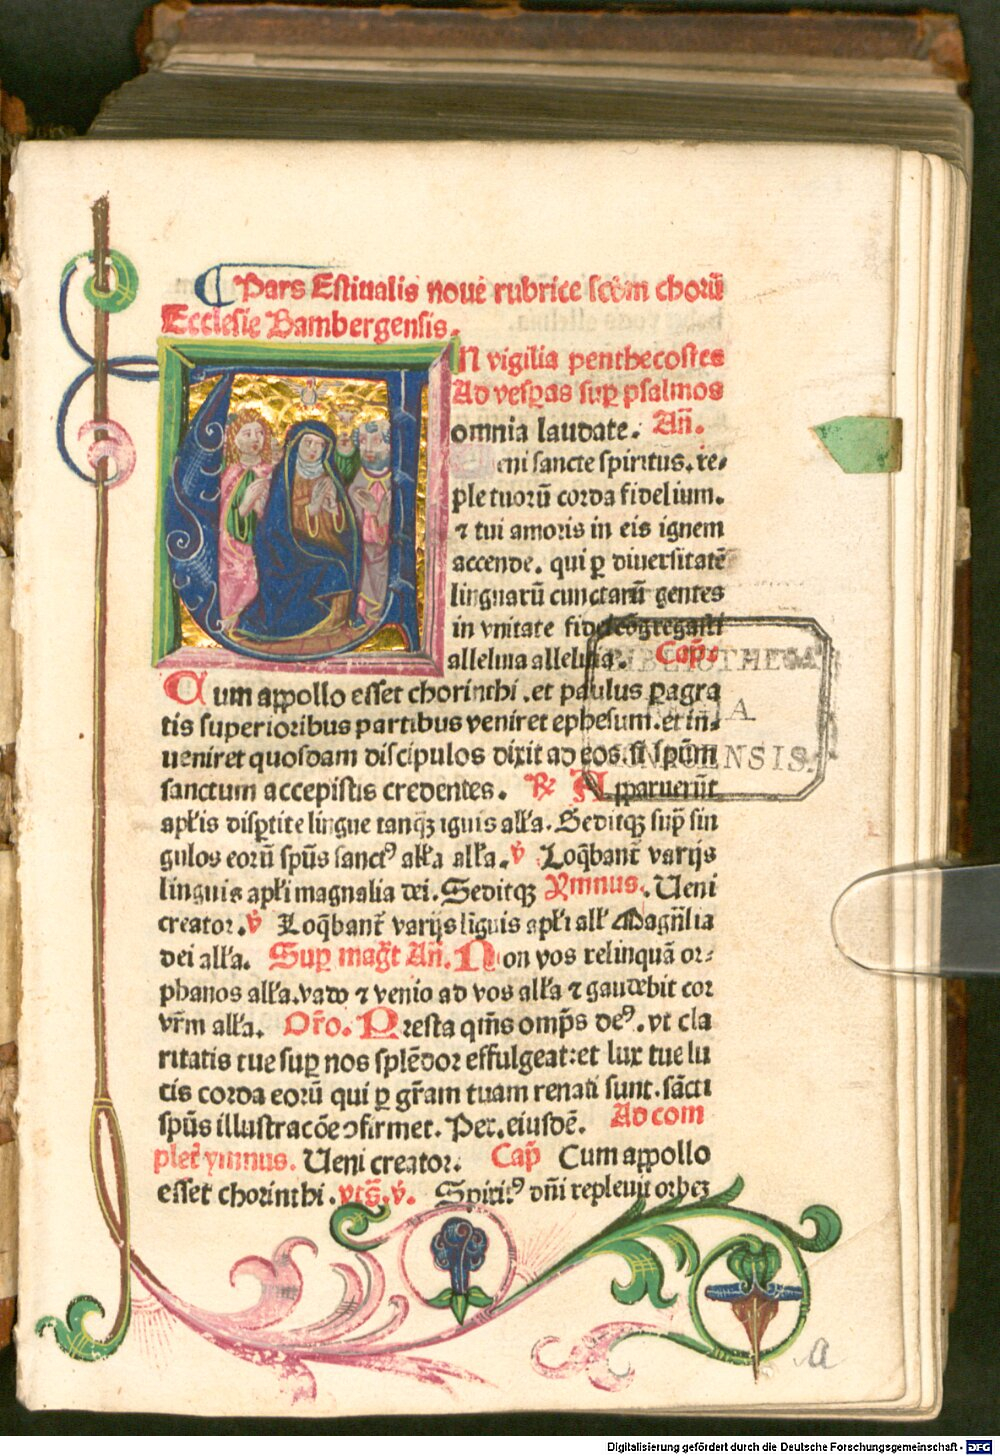 Pars Estiualis noue rubrice scd̄m chorū
Ecclesie Bambergensis.
In vigilia penthecostes
Ad vesꝑas suꝑ psalmos
omnia laudate. Añ.
Veni sancte spiritus. re⸗
ple tuorū corda fidelium.
⁊ tui amoris in eis ignem
accende. qui ꝑ diuersitatē
linguarū cunctarū gentes
in vnitate fidei cōgregasti
alleluia alleluia. Cap̄.
Cum appollo esset chorinthi. et paulus ꝑagra
tis superioribus partibus veniret ephesum. et in⸗
ueniret quosdam discipulos dixit ad eos. si spūm
sanctum accepistis credentes. ℟ Apparuerūt
apłis disꝑtite lingue tanq̄ꝫ ignis alła. Seditqꝫ suꝑ sin
gulos eorū spūs sanctꝰ alła alła. ℣ Loq̄bant̄ varijs
linguis apłi magnalia dei. Seditqꝫ Ymnus. Ueni
creator. ℣ Loq̄bant̄ varijs līguis apłi all' Magn̄lia
dei alła. Suꝑ mag̃t Añ. Non vos relinquā or⸗
phanos alła. vado ⁊ venio ad vos alła ⁊ gaudebit cor
vr̄m alła. Or̄o. Presta qm̄s omp̄s deꝰ. vt cla
ritatis tue suꝑ nos splēdor effulgeat: et lux tue lu
cis corda eorū qui ꝑ gr̄am tuam renati sunt. sācti
spūs illustracōe ↄfirmet. Per. eiusdē. Ad com
plet̄ ymnus. Ueni creator. Cap̄ Cum appollo
esset chorinthi. vts̄. ℣. Spiritꝰ dn̄i repleuit orbeꝫ
BIBLIOTHECA
REGIA
MONACENSIS.
a
Digitalisierung gefördert durch die Deutsche Forschungsgemeinschaft - DFG